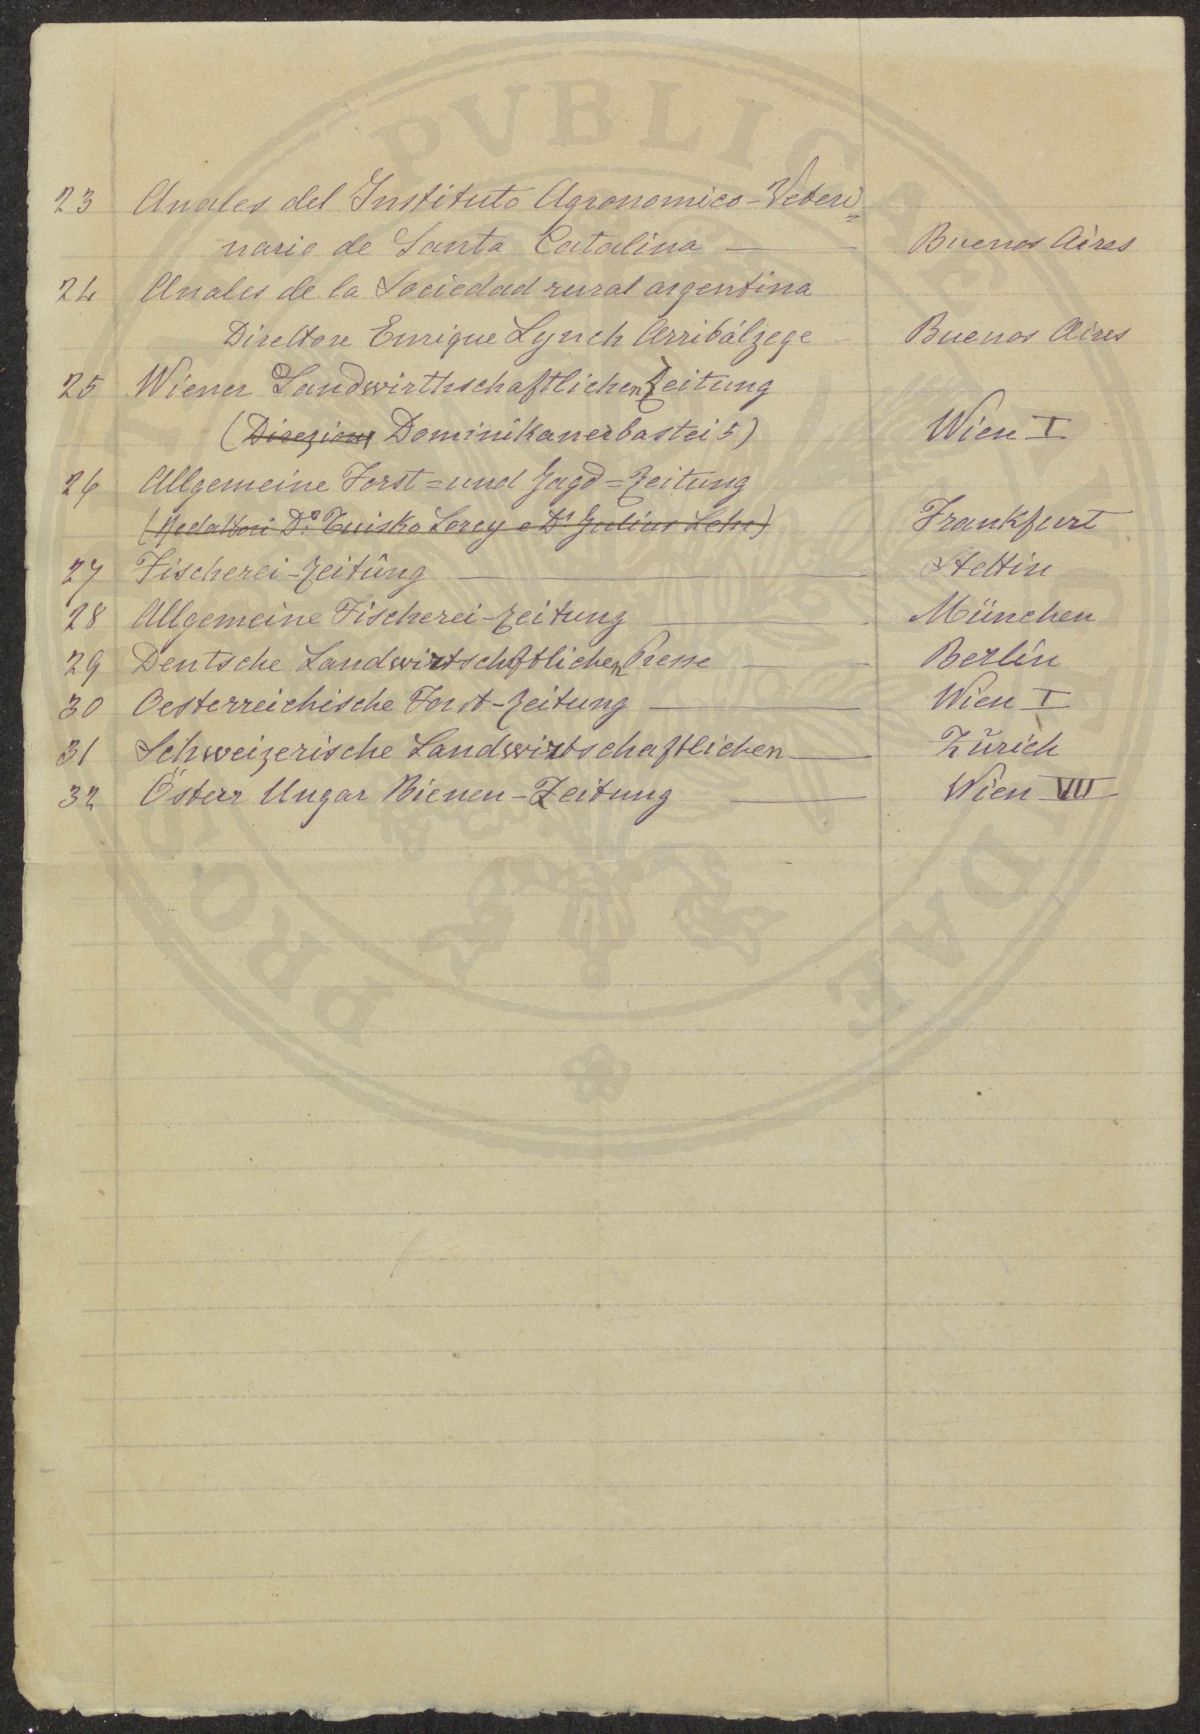 23 Anales del Instituto Agronomico-Veteri=
nario de Santa Catalina — Buenos Aires
24 Anales de la Sociedad rural argentina
Direttore Enrique Lynch Arribálzege — Buenos Aires
25 Wiener Landwirthschaftlichen Zeitung
(Direzione Dominikanerbastei 5) Wien I
26 Allgemeine Forst=und Jagd=Zeitung
(Redattori Dr. Tuisko Lorey e Dr Julius Lehr) Frankfurt
27 Fischerei-Zeitûng — Stettin
28 Allgemeine Fischerei-Zeitung — München
29 Deutsche Landwirtschftlichen Presse — Berlin
30 Oesterreichische Forst-Zeitung — Wien I
31 Schweizerische Landwirtschaftlichen — Zürich
32 Österr Ungar Bienen-Zeitung — Wien VII